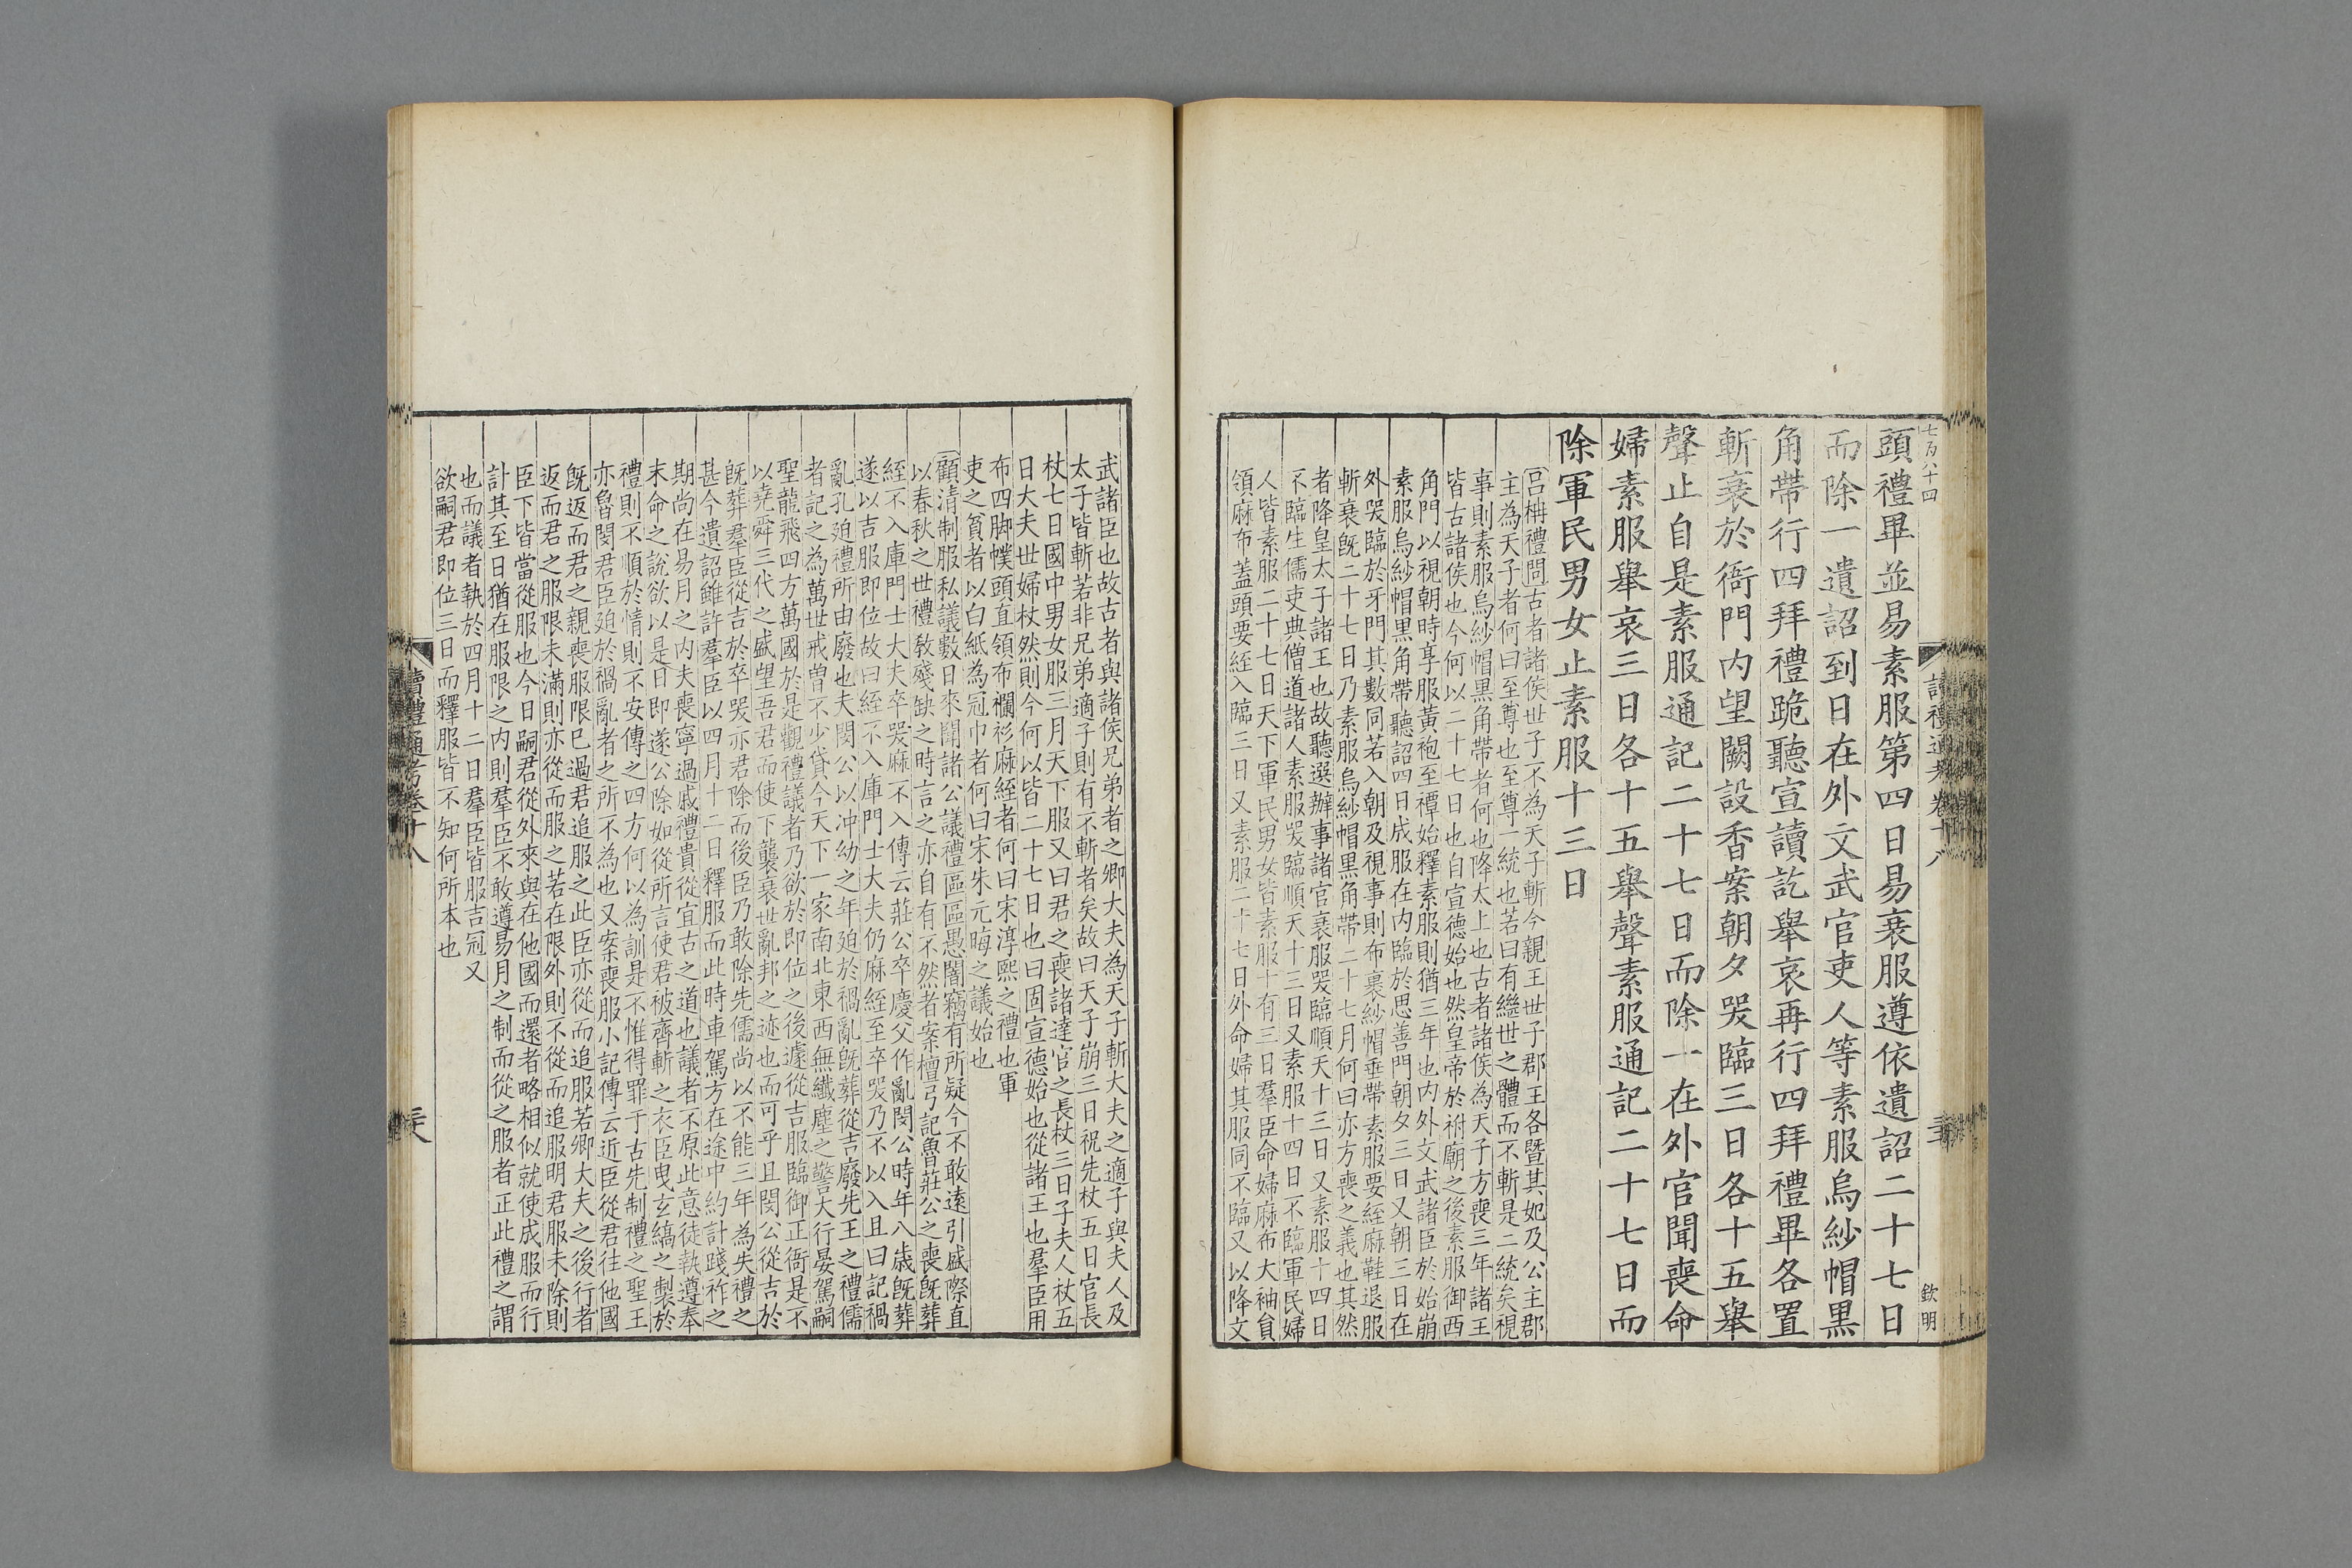 七百八十四
讀禮通考卷十八
欽明
頭禮畢並易素服第四日易衰服遵依遺詔二十七日
而除一遺詔到日在外文武官吏人等素服烏紗帽黑
角帶行四拜禮跪聽宣讀訖舉哀再行四拜禮畢各置
斬衰於衙門内望闕設香案朝夕哭臨三日各十五舉
聲止自是素服通記二十七日而除一在外官聞喪命
婦素服舉哀三日各十五舉聲素服通記二十七日而
除軍民男女止素服十三日
呂柟禮問古者諸侯世子不為天子斬今親王世子郡王各暨其妃及公主郡
主為天子者何曰至尊也至尊一統也若曰有繼世之體而不斬是二統矣視
事則素服烏紗帽黑角帶者何也降太上也古者諸侯為天子方喪三年諸王
皆古諸侯也今何以二十七日也自宣德始也然皇帝於祔廟之後素服御西
角門以視朝時享服黃袍至禫始釋素服則猶三年也内外文武諸臣於始崩
素服烏紗帽黑角帶聽詔四日成服在内臨於思善門朝夕三日又朝三日在
外哭臨於牙門其數同若入朝及視事則布裹紗帽垂帶素服要絰麻鞋退服
斬衰既二十七日乃素服烏紗帽黑角帶二十七月何曰亦方喪之義也其然
者降皇太子諸王也故聽選辦事諸官衰服哭臨順天十三日又素服十四日
不臨生儒吏典僧道諸人素服哭臨順天十三日又素服十四日不臨軍民婦
人皆素服二十七日天下軍民男女皆素服十有三日羣臣命婦麻布大袖貟
領麻布蓋頭要絰入臨三日又素服二十七日外命婦其服同不臨又以降文
武諸臣也故古者與諸侯兄弟者之卿大夫為天子斬大夫之適子與夫人及
太子皆斬若非兄弟適子則有不斬者矣故曰天子崩三日祝先杖五日官長
杖七日國中男女服三月天下服又曰君之喪諸達官之長杖三日子夫人杖五
日大夫世婦杖然則今何以皆二十七日也曰固宣德始也從諸王也羣臣用
布四脚幞頭直領布襴衫麻絰者何曰宋淳熙之禮也軍
吏之貧者以白紙為冠巾者何曰宋朱元晦之議始也
顧清制服私議數日來聞諸公議禮區區愚闇竊有所疑今不敢遠引盛際直
以春秋之世禮敎殘缺之時言之亦自有不然者案檀弓記魯莊公之喪既葬
絰不入庫門士大夫卒哭麻不入傳云莊公卒慶父作亂閔公時年八歲既葬
遂以吉服即位故曰絰不入庫門士大夫仍麻絰至卒哭乃不以入且曰記禍
亂孔廹禮所由廢也夫閔公以冲幼之年廹於禍亂既葬從吉廢先王之禮儒
者記之為萬世戒曾不少貸今天下一家南北東西無纖塵之警大行晏駕嗣
聖龍飛四方萬國於是觀禮議者乃欲於即位之後遽從吉服臨御正衙是不
以堯舜三代之盛望吾君而使下襲衰世亂邦之迹也而可乎且閔公從吉於
既葬羣臣從吉於卒哭亦君除而後臣乃敢除先儒尚以不能三年為失禮之
甚今遺詔雖許羣臣以四月十二日釋服而此時車駕方在途中約計踐祚之
期尚在易月之内夫喪寧過戚禮貴從宜古之道也議者不原此意徒執遵奉
末命之說欲以是日即遂公除如從所言使君被齊斬之衣臣曳玄縞之製於
禮則不順於情則不安傳之四方何以為訓是不惟得罪于古先制禮之聖王
亦魯閔君臣廹於禍亂者之所不為也又案喪服小記傳云近臣從君往他國
既返而君之親喪服限已過君追服之此臣亦從而追服若卿大夫之後行者
返而君之服限未滿則亦從而服之若在限外則不從而追服明君服未除則
臣下皆當從服也今日嗣君從外來與在他國而還者略相似就使成服而行
計其至日猶在服限之内則羣臣不敢遵易月之制而從之服者正此禮之謂
也而議者執於四月十二日羣臣皆服吉冠又
欲嗣君即位三日而釋服皆不知何所本也
讀禮通考卷十八